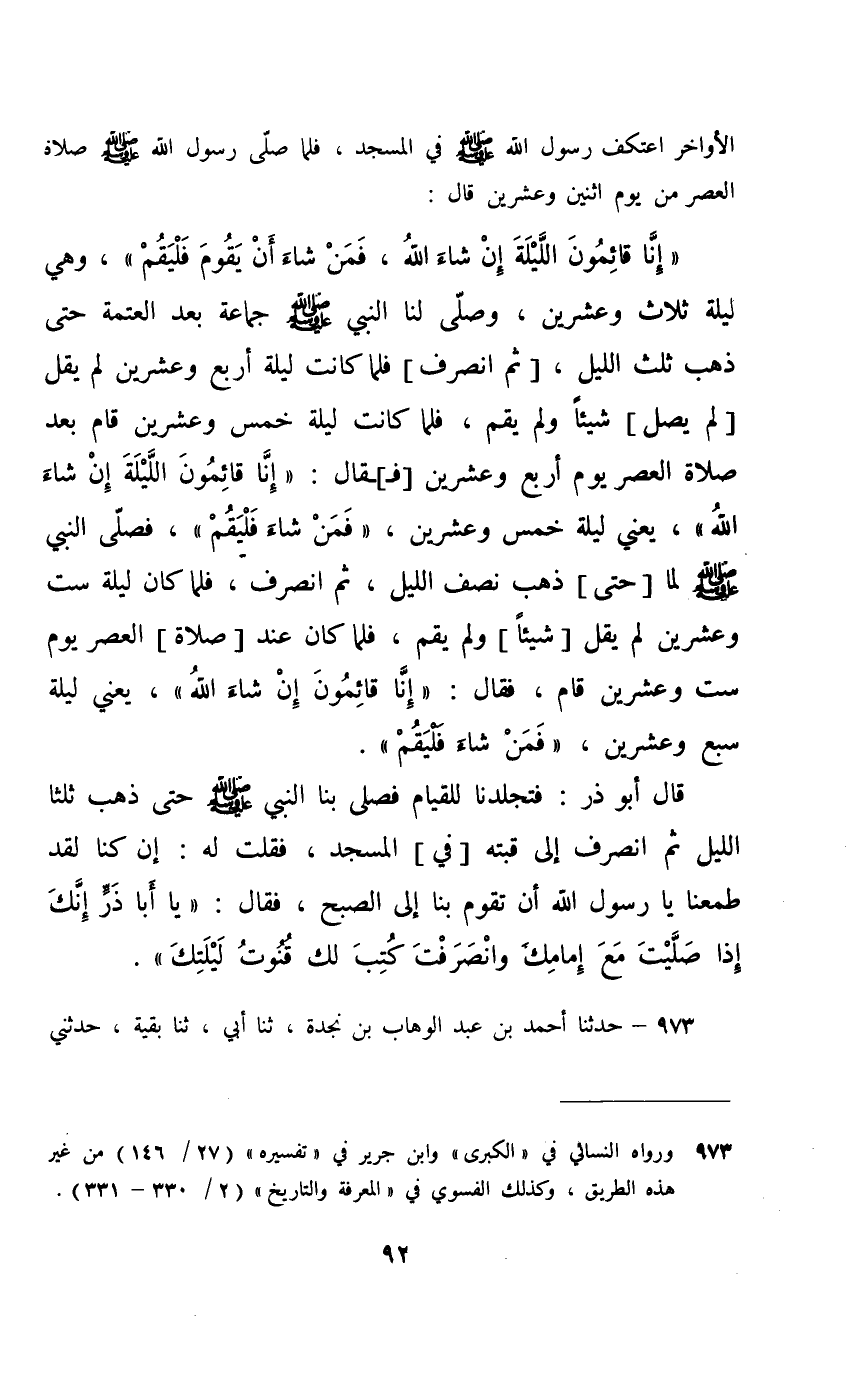 الأواخر اعتكف رسول الله ﷺ في المسجد ، فلما صلّى رسول الله ﷺ صلاة
العصر من يوم اثنين وعشرين قال :
« إِنَّا قائِمُونَ اللَّيْلَةَ إِنْ شاءَ اللهُ ، فَمَنْ شاءَ أَنْ يَقُومَ فَلْيَقُمْ » ، وهي
ليلة ثلاث وعشرين ، وصلّى لنا النبي ﷺ جماعة بعد العتمة حتى
ذهب ثلث الليل ، [ ثم انصرف ] فلما كانت ليلة أربع وعشرين لم يقل
[ لم يصل ] شيئاً ولم يقم ، فلما كانت ليلة خمس وعشرين قام بعد
صلاة العصر يوم أربع وعشرين [فـ]ـقال : « إِنَّا قائِمُونَ اللَّيْلَةَ إِنْ شاءَ
اللهُ » ، يعني ليلة خمس وعشرين ، « فَمَنْ شاءَ فَلْيَقُمْ » ، فصلّى النبي
ﷺ لما [ حتى ] ذهب نصف الليل ، ثم انصرف ، فلما كان ليلة ست
وعشرين لم يقل [ شيئاً ] ولم يقم ، فلما كان عند [ صلاة ] العصر يوم
ست وعشرين قام ، فقال : « إِنَّا قائِمُونَ إِنْ شاءَ اللهُ » ، يعني ليلة
سبع وعشرين ، « فَمَنْ شاءَ فَلْيَقُمْ » .
قال أبو ذر : فتجلدنا للقيام فصلى بنا النبي ﷺ حتى ذهب ثلثا
الليل ثم انصرف إلى قبته [ في ] المسجد ، فقلت له : إن كنا لقد
طمعنا يا رسول الله أن تقوم بنا إلى الصبح ، فقال : « يا أَبا ذَرٍّ إِنَّكَ
إِذا صَلَّيْتَ مَعَ إِمامِكَ وانْصَرَفْتَ كُتِبَ لك قُنُوتُ لَيْلَتِكَ » .
٩٧٣ – حدثنا أحمد بن عبد الوهاب بن نجدة ، ثنا أبي ، ثنا بقية ، حدثني
٩٧٣ ورواه النسائي في « الكبرى » وابن جرير في « تفسيره » ( ٢٧ / ١٤٦ ) من غير
هذه الطريق ، وكذلك الفسوي في « المعرفة والتاريخ » ( ٢ / ٣٣٠ – ٣٣١ ) .
٩٢